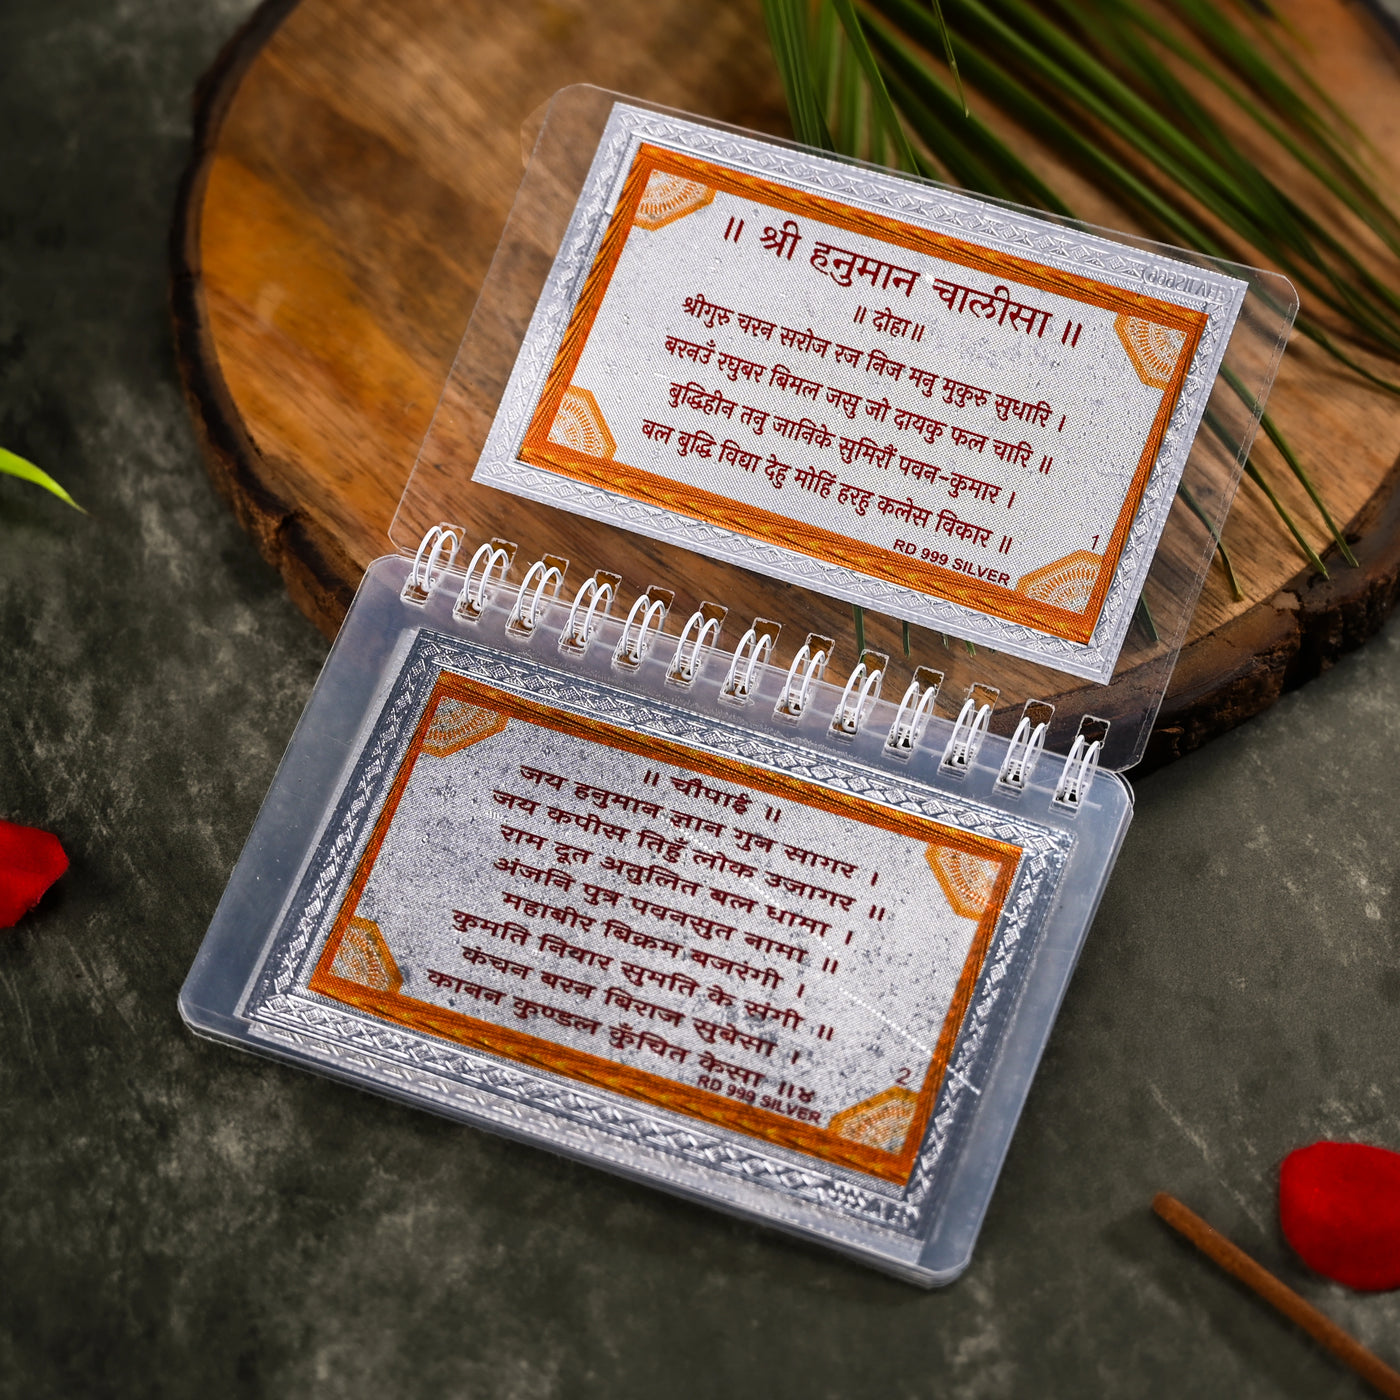 ॥ श्री हनुमान चालीसा ॥
॥ दोहा॥
श्रीगुरु चरन सरोज रज निज मनु मुकुरु सुधारि ।
बरनउँ रघुबर बिमल जसु जो दायकु फल चारि ॥
बुद्धिहीन तनु जानिके सुमिरौं पवन-कुमार ।
बल बुद्धि विद्या देहु मोहिं हरहु कलेस विकार ॥
1
RD 999 SILVER
॥ चौपाई ॥
जय हनुमान ज्ञान गुन सागर ।
जय कपीस तिहुँ लोक उजागर ॥
राम दूत अतुलित बल धामा ।
अंजनि पुत्र पवनसुत नामा ॥
महाबीर बिक्रम बजरंगी ।
कुमति निवार सुमति के संगी ॥
कंचन बरन बिराज सुबेसा ।
कानन कुण्डल कुँचित केसा ॥४
2
RD 999 SILVER